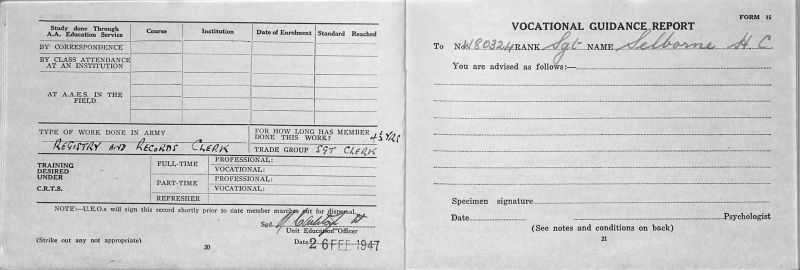 Study done Through A.A. Education Service
Course
Institution
Date of Enrolment
Standard Reached
BY CORRESPONDENCE
BY CLASS ATTENDANCE AT AN INSTITUTION
AT A.A.E.S. IN THE FIELD
TYPE OF WORK DONE IN ARMY
REGISTRY AND RECORDS CLERK
FOR HOW LONG HAS MEMBER DONE THIS WORK? 4½ YRS
TRADE GROUP SGT CLERK
TRAINING DESIRED UNDER C.R.T.S.
FULL-TIME
PROFESSIONAL:
VOCATIONAL:
PART-TIME
PROFESSIONAL:
VOCATIONAL:
REFRESHER
NOTE:—U.E.O.s will sign this record shortly prior to date member marches out for disposal.
Sgd.
Unit Education Officer
(Strike out any not appropriate)
20
Date 26 FEB 1947
FORM 15
VOCATIONAL GUIDANCE REPORT
To No. RANK Sgt NAME Selborne H. C
You are advised as follows:—
Specimen signature
Date Psychologist
(See notes and conditions on back)
21